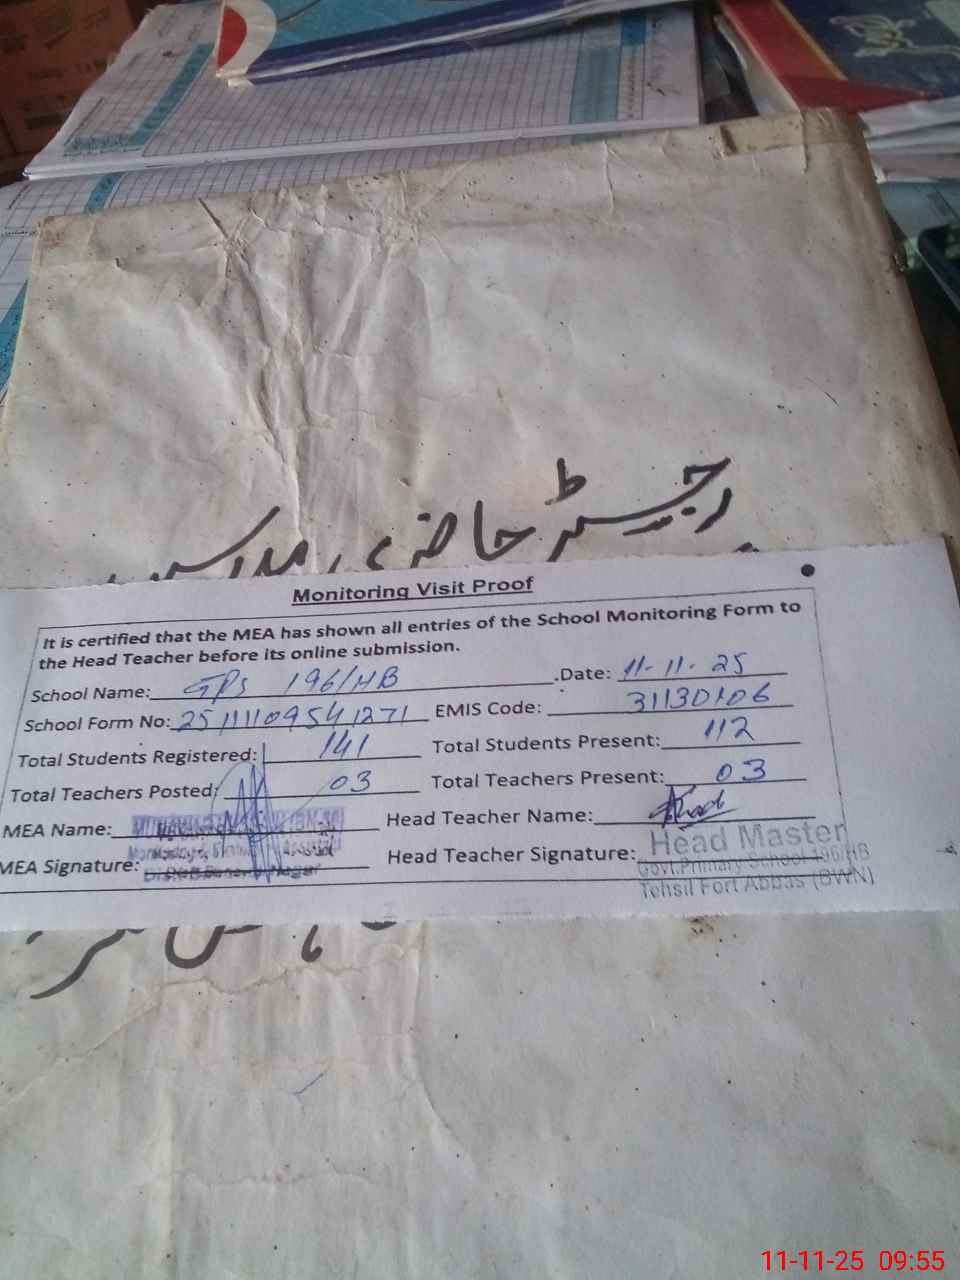 رجسٹر حاضری مدرسین
Monitoring Visit Proof
It is certified that the MEA has shown all entries of the School Monitoring Form to
the Head Teacher before its online submission.
School Name: GPS 196/HB .Date: 11-11-25
School Form No: 25111109541271 EMIS Code: 31130106
Total Students Registered: 141 Total Students Present: 112
Total Teachers Posted: 03 Total Teachers Present: 03
MEA Name: Head Teacher Name:
MEA Signature: Head Teacher Signature:
Head Master
Govt. Primary School 196/HB
Tehsil Fort Abbas (BWN)
11-11-25 09:55